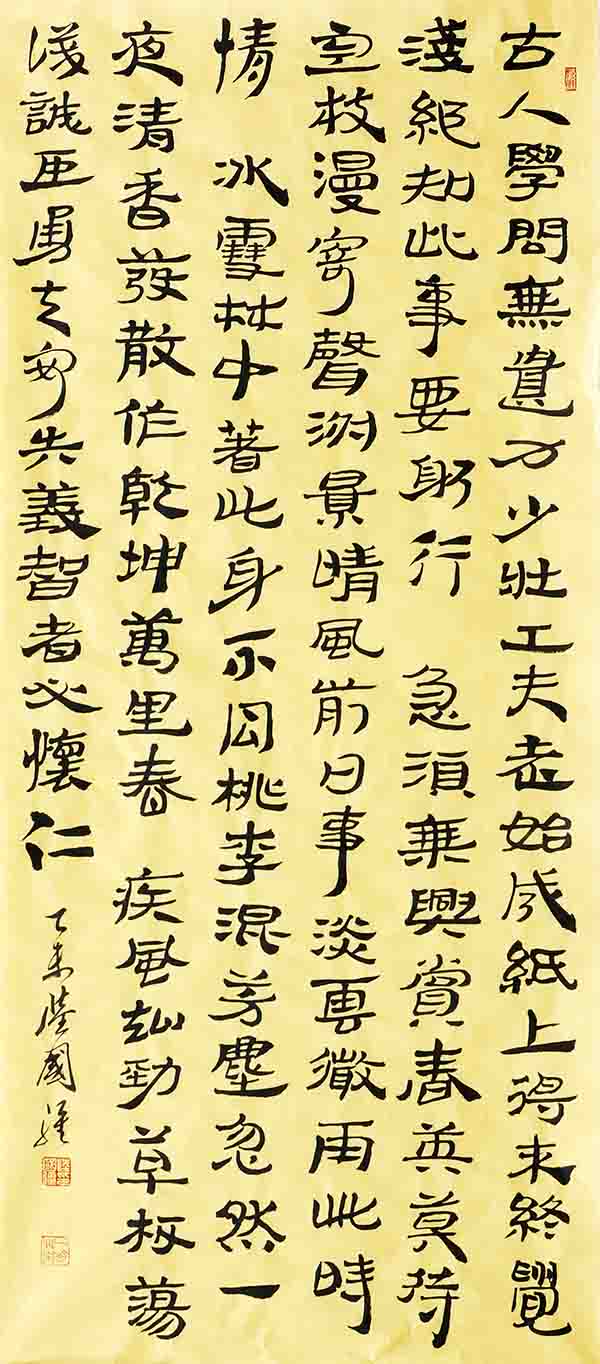 古人學問無遺力少壯工夫老始成紙上得来終覺
淺絕知此事要躬行 急須乘興賞春英莫待
空枝漫寄聲淑景晴風前日事淡雲微雨此時
情 冰雪林中著此身不同桃李混芳塵忽然一
夜清香發散作乾坤萬里春 疾風知勁草板蕩
識誠臣勇安失義智者必懷仁
乙未國